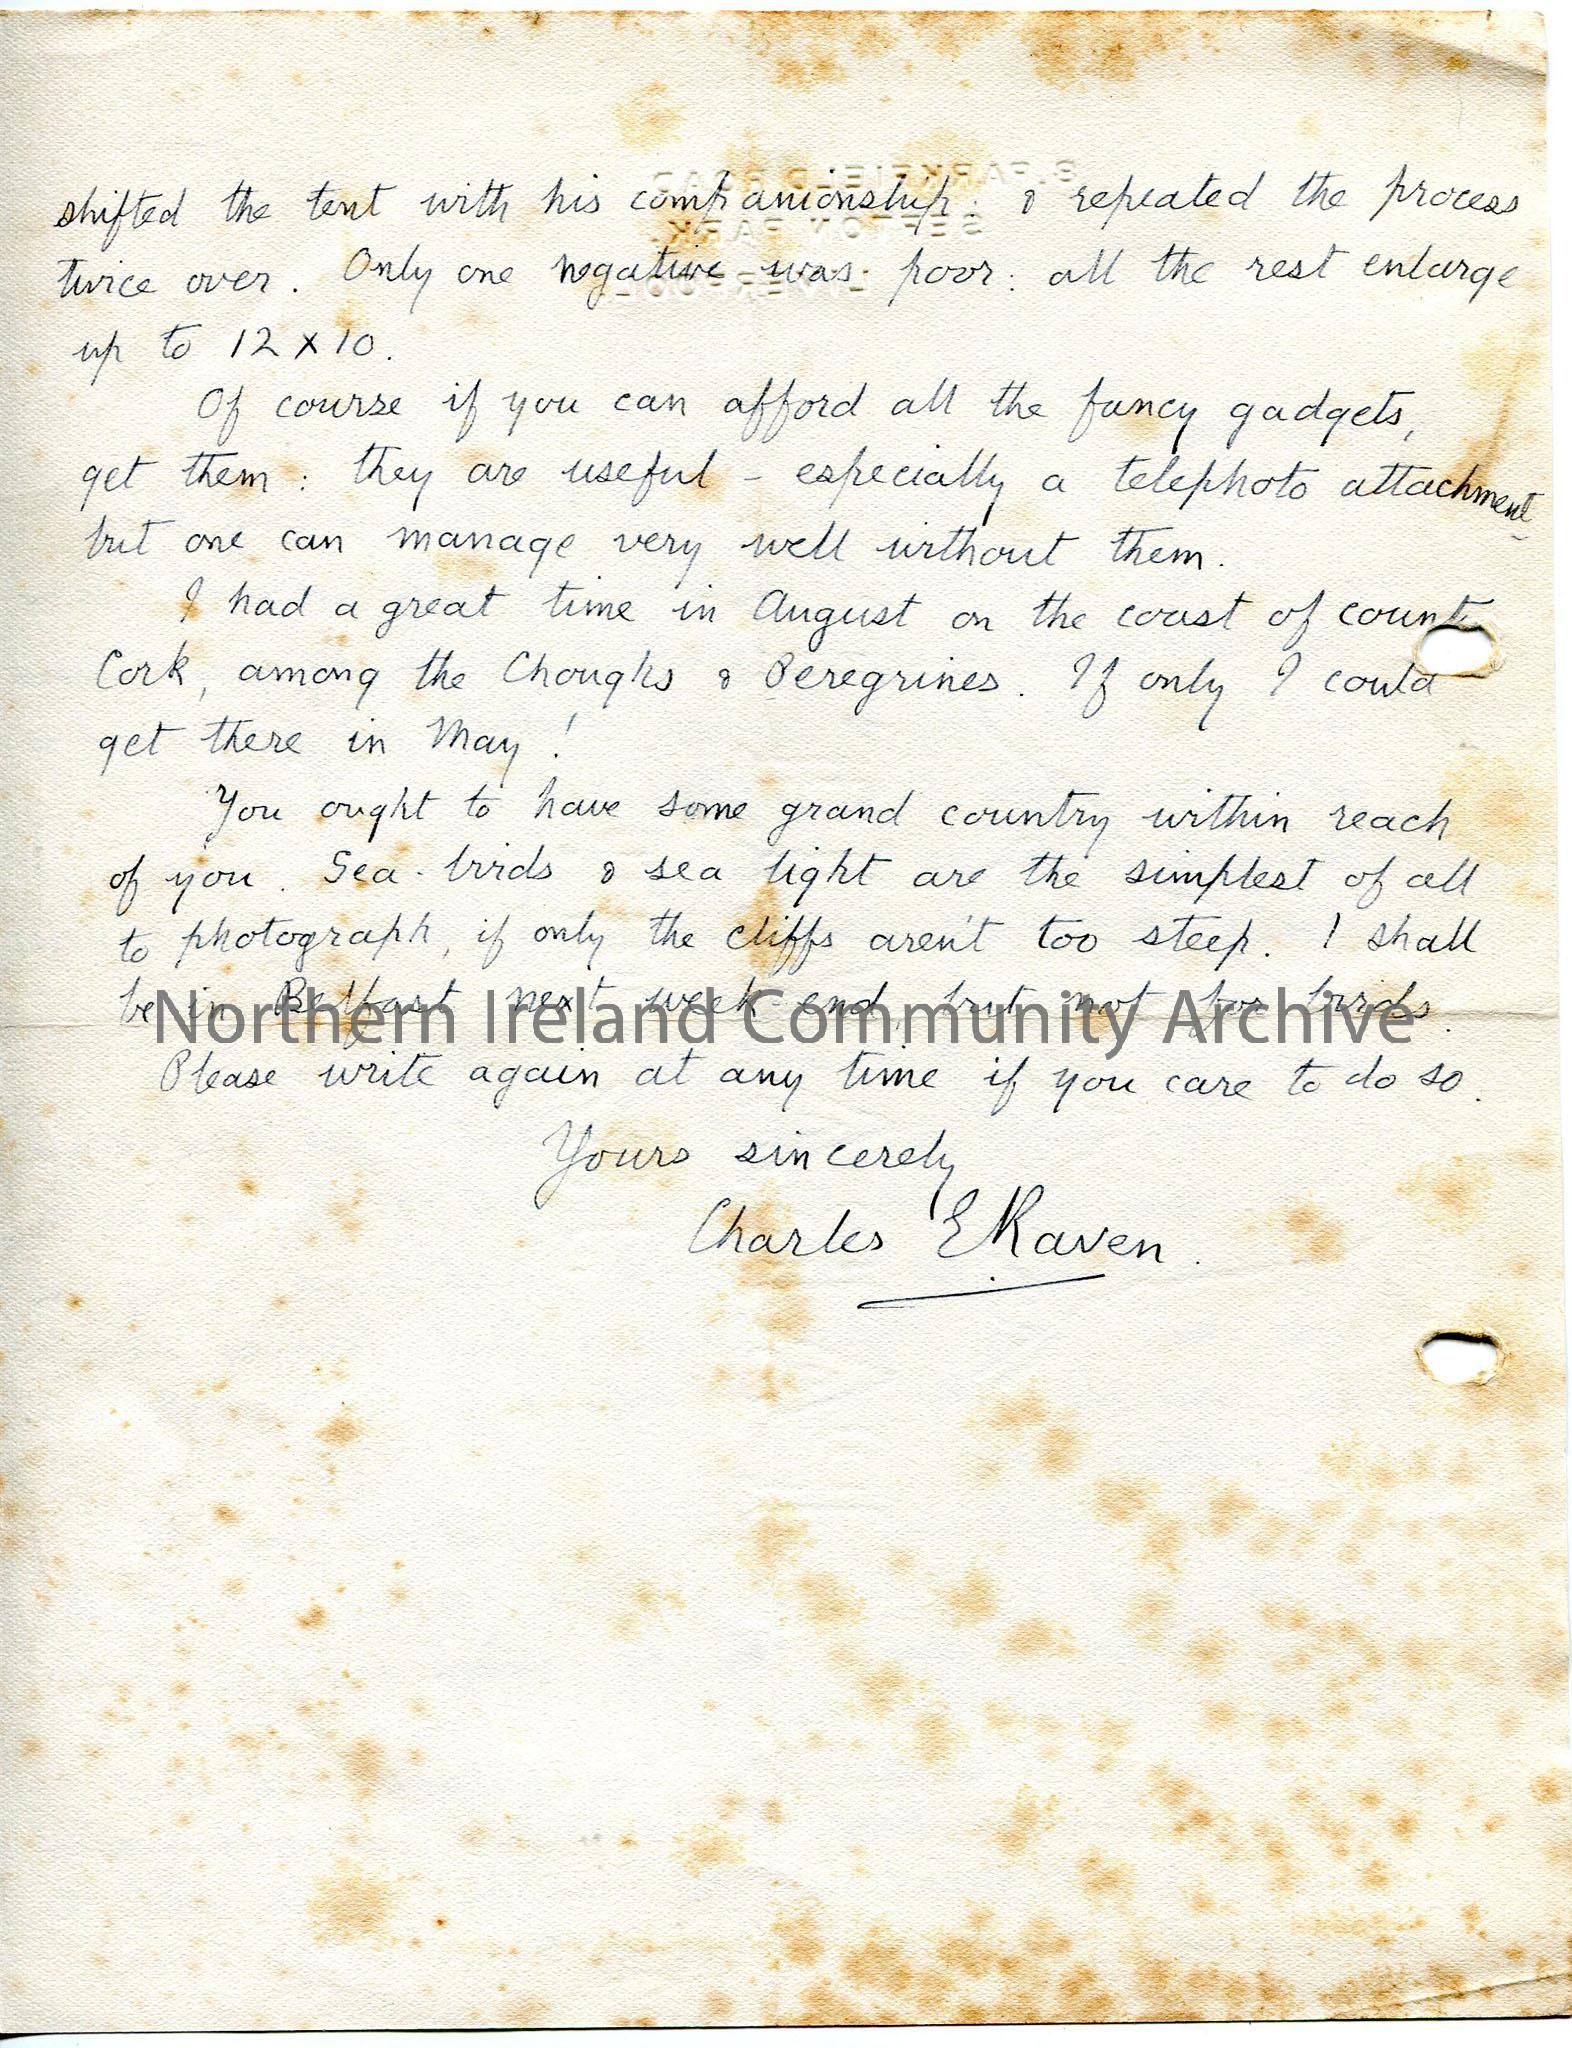 8. PARKFIELD ROAD,
SEFTON PARK,
LIVERPOOL.
shifted the tent with his companionship: & repeated the process
twice over. Only one negative was poor: all the rest enlarge
up to 12 x 10.
Of course if you can afford all the fancy gadgets,
get them: they are useful - especially a telephoto attachment -
but one can manage very well without them.
I had a great time in August on the coast of county
Cork, among the Choughs & Peregrines. If only I could
get there in May!
You ought to have some grand country within reach
of you. Sea-birds & sea light are the simplest of all
to photograph, if only the cliffs aren't too steep. I shall
be in Belfast next week-end, but not for birds.
Northern Ireland Community Archive
Please write again at any time if you care to do so.
Yours sincerely
Charles E Raven.